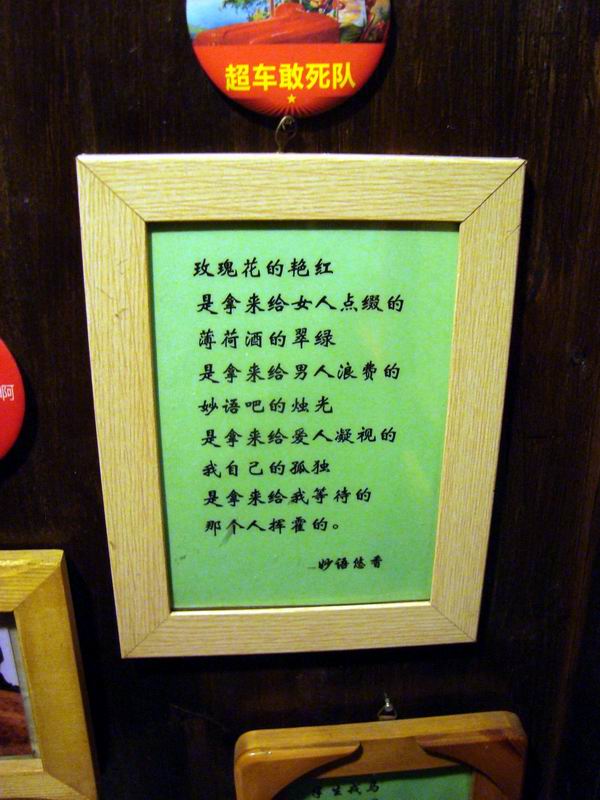 超车敢死队
玫瑰花的艳红
是拿来给女人点缀的
薄荷酒的翠绿
是拿来给男人浪费的
妙语吧的烛光
是拿来给爱人凝视的
我自己的孤独
是拿来给我等待的
那个人挥霍的。
妙语悠香
啊